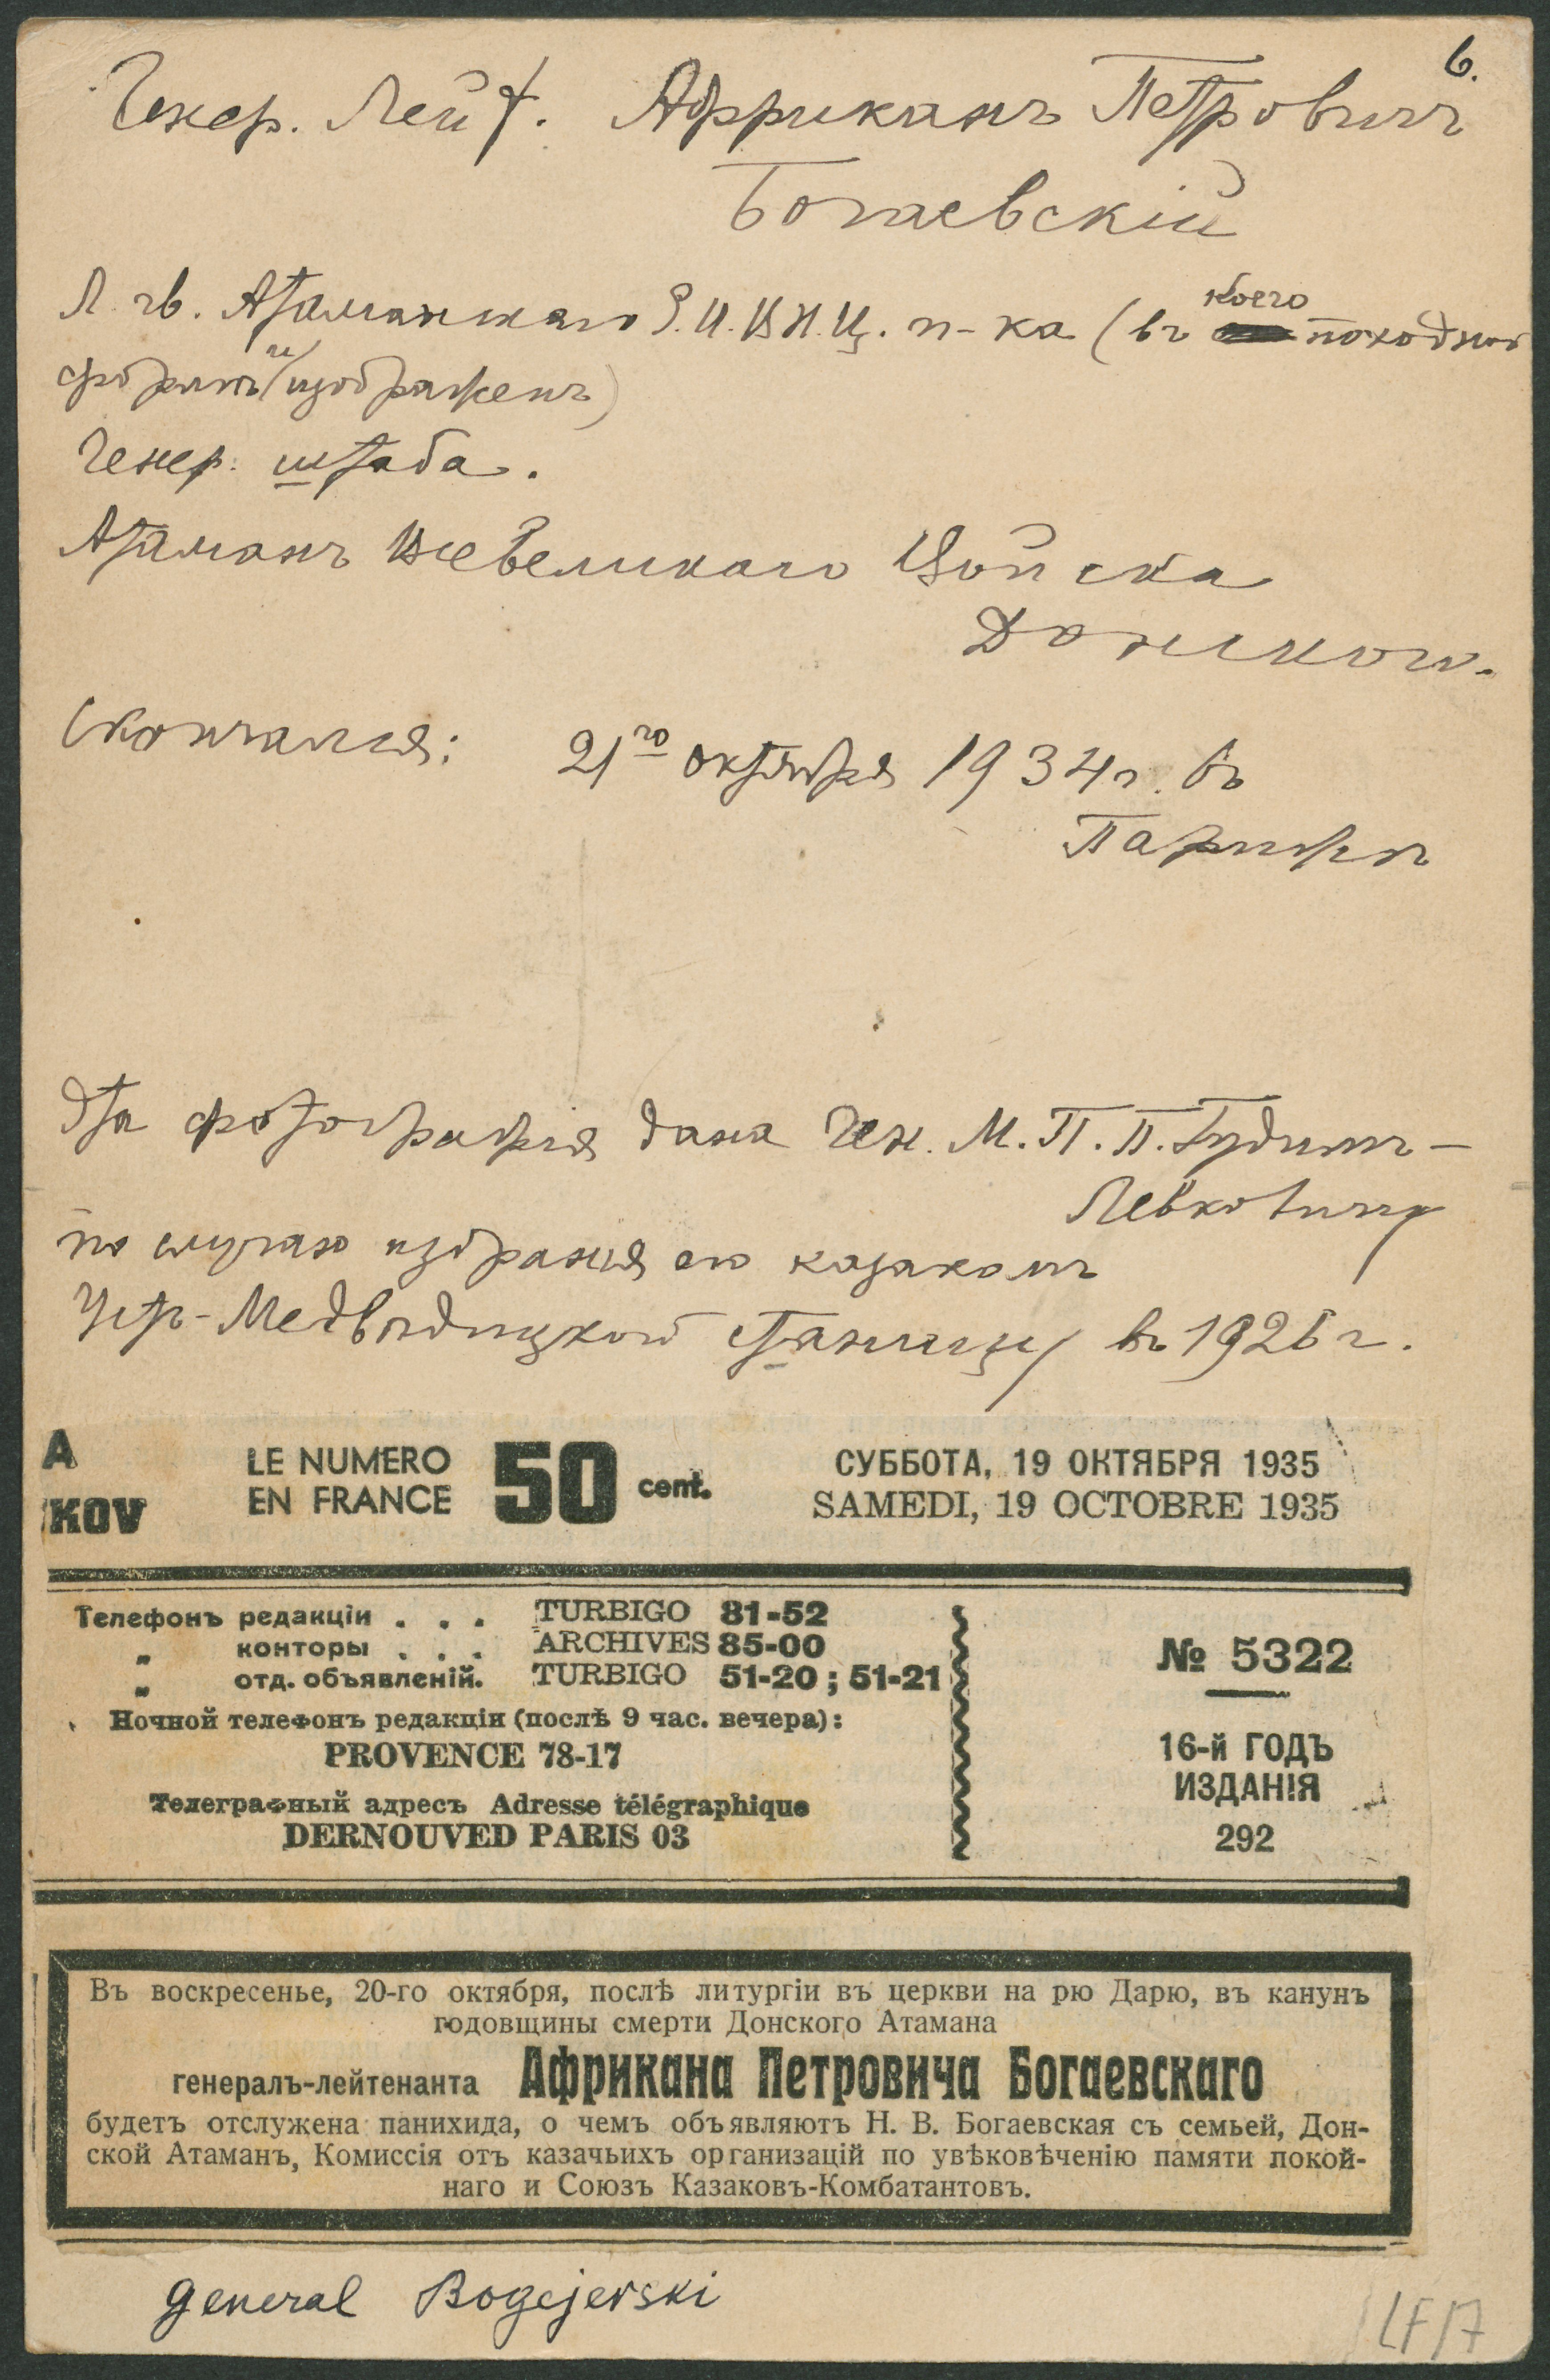 6.
Генер. Лейт. Африканъ Петровичъ
Богаевскій
Л. гв. Атаманскаго Е.И.В.Н.Ц. п-ка (въ коего походной
формѣ и изображенъ)
Генер. штаба.
Атаманъ Всевеликаго Войска
Донского.
Скончался: 21го октября 1934 г. въ
Парижѣ
Эта фотографія дана Ген. М. П. П. Гудимъ-
Левковичу
по случаю избранія его казакомъ
Усть-Медвѣдицкой станицы въ 1926 г.
A
KOV
LE NUMERO
EN FRANCE 50 cent.
СУББОТА, 19 ОКТЯБРЯ 1935
SAMEDI, 19 OCTOBRE 1935
Телефонъ редакціи . . . TURBIGO 81-52
„ конторы . . . ARCHIVES 85-00
„ отд. объявленій. TURBIGO 51-20 ; 51-21
Ночной телефонъ редакціи (послѣ 9 час. вечера):
PROVENCE 78-17
Телеграфный адресъ Adresse télégraphique
DERNOUVED PARIS 03
№ 5322
16-й ГОДЪ
ИЗДАНІЯ
292
Въ воскресенье, 20-го октября, послѣ литургіи въ церкви на рю Дарю, въ канунъ
годовщины смерти Донского Атамана
генералъ-лейтенанта Африкана Петровича Богаевскаго
будетъ отслужена панихида, о чемъ объявляютъ Н. В. Богаевская съ семьей, Дон-
ской Атаманъ, Комиссія отъ казачьихъ организацій по увѣковѣченію памяти покой-
наго и Союзъ Казаковъ-Комбатантовъ.
General Bogejerski
LF17